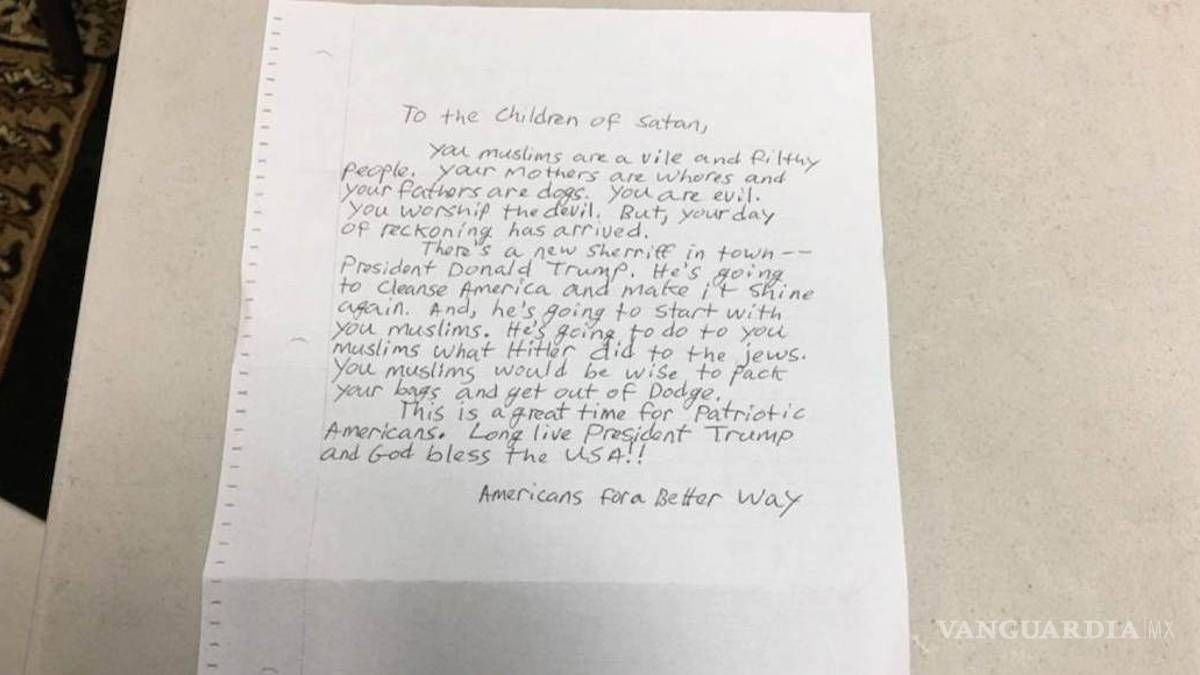 To the Children of Satan,
You muslims are a vile and filthy
people. Your mothers are whores and
your fathers are dogs. You are evil.
You worship the devil. But, your day
of reckoning has arrived.
There's a new sherriff in town--
President Donald Trump. He's going
to cleanse America and make it shine
again. And, he's going to start with
you muslims. He's going to do to you
muslims what Hitler did to the jews.
You muslims would be wise to pack
your bags and get out of Dodge.
This is a great time for Patriotic
Americans. Long live President Trump
and God bless the USA!!
Americans for a Better Way
VANGUARDIA|MX